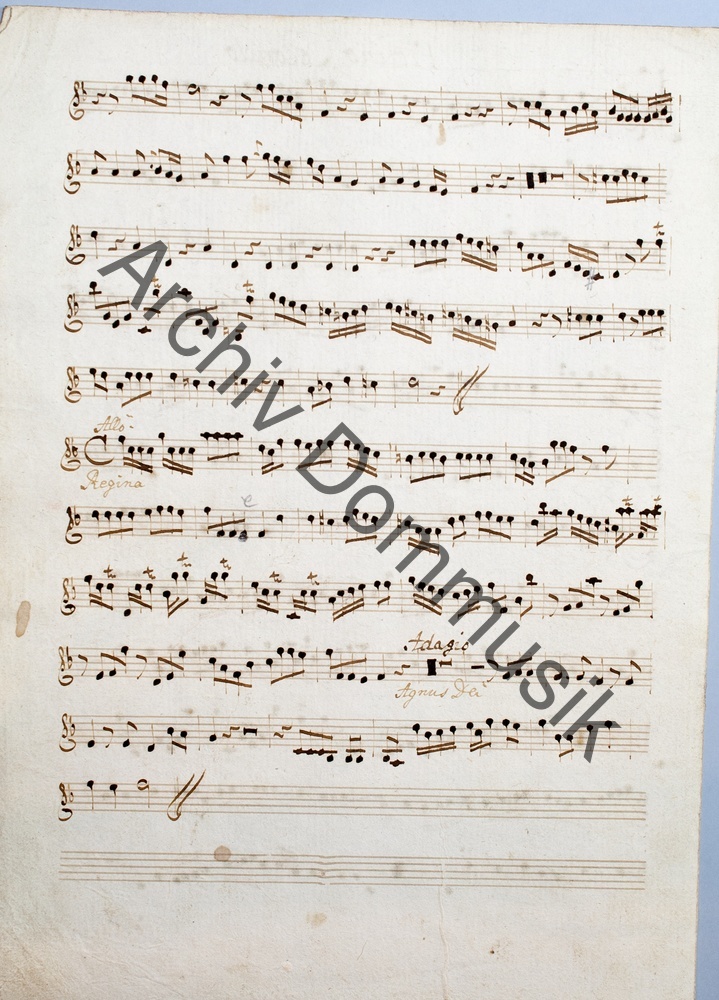 Allo
Regina
Adagio
Agnus Dei
Archiv Dommusik